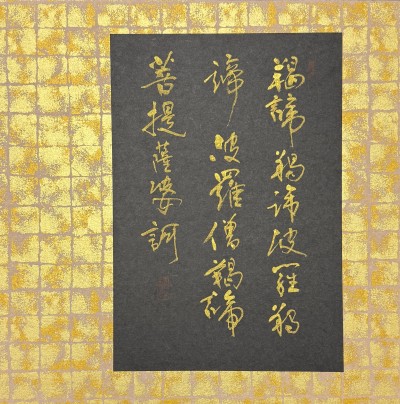 羯諦羯諦波羅羯
諦波羅僧羯諦
菩提薩婆訶